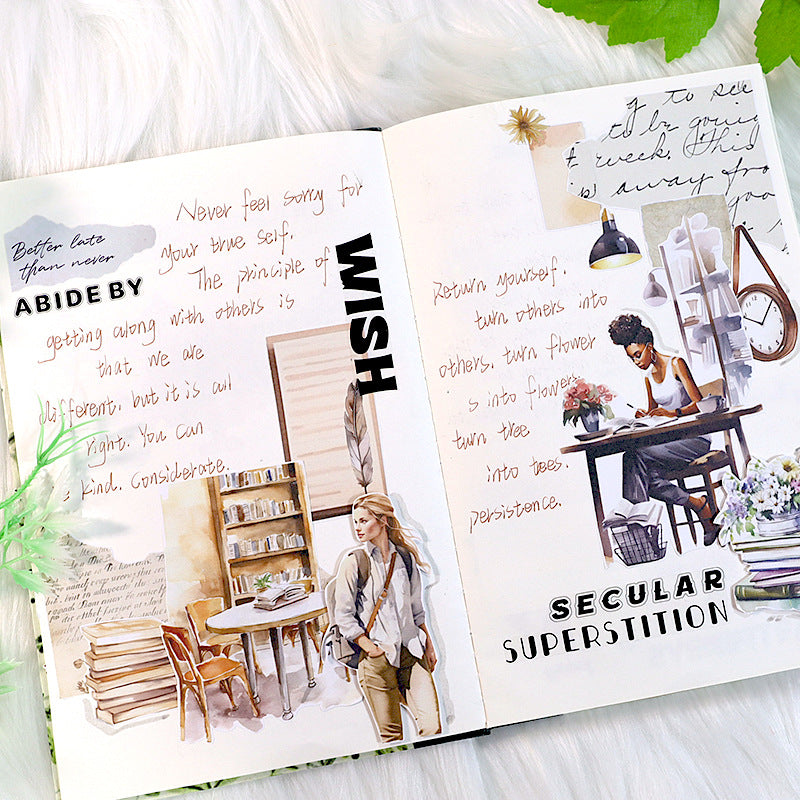 Better late
than never
ABIDE BY
Never feel sorry for
your true self.
The principle of
getting along with others is
that we are
different, but it is all
right. You can
kind. Considerate.
WISH
to see
to be going
week. This
away
Return yourself.
turn others into
others, turn flower
s into flowers.
turn tree
into trees.
persistence.
SECULAR
SUPERSTITION